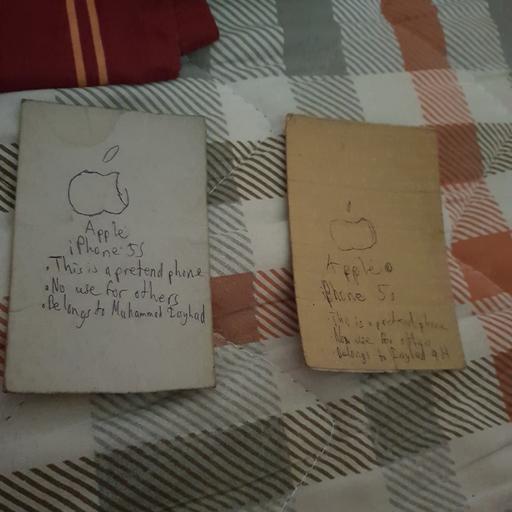 Apple
iPhone 5s
• This is a pretend phone
• No use for others
• Belongs to Muhammad Zayhad
Apple
iPhone 5s
This is a pretend phone
use for
Belongs to Zayhad